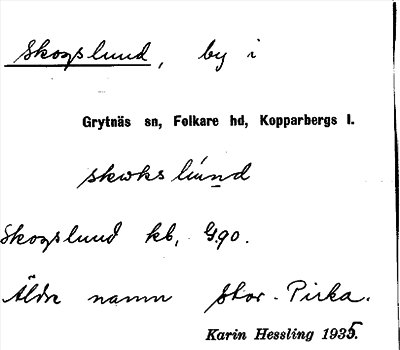 Skogslund, by i
Grytnäs sn, Folkare hd, Kopparbergs l.
skωks lúnd
Skogslund kb, G.90.
Äldre namn Stor-Pirka.
Karin Hessling 1935.